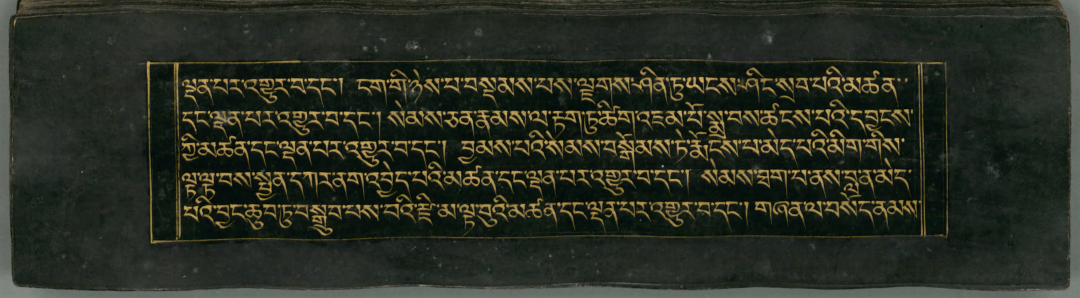 ལྡན་པར་འགྱུར་བ་དང་། ངག་གི་ཉེས་པ་བསྡམས་པས་ལྗགས་ཤིན་ཏུ་ཡངས་ཤིང་སྲབ་པའི་མཚན་་
དང་ལྡན་པར་འགྱུར་བ་དང་། སེམས་ཅན་རྣམས་ལ་རྟག་ཏུ་ཚིག་འཇམ་པོ་སྨྲ་བས་ཚངས་པའི་དབྱངས་
ཀྱི་མཚན་དང་ལྡན་པར་འགྱུར་བ་དང་། བྱམས་པའི་སེམས་བསྒོམས་ཏེ་རྨོངས་པ་མེད་པའི་མིག་གིས་
ལྟ་ལྟ་བས་སྤྱན་དཀར་ནག་འབྱེད་པའི་མཚན་དང་ལྡན་པར་འགྱུར་བ་དང་། སེམས་ཐག་པ་ནས་བླུན་མེད་
པའི་བྱང་ཆུབ་ཏུ་བསྒྲུབ་པས་བའི་རྫི་མ་ལྟ་བུའི་མཚན་དང་ལྡན་པར་འགྱུར་བ་དང་། གཞན་ལ་བསོད་ནམས་